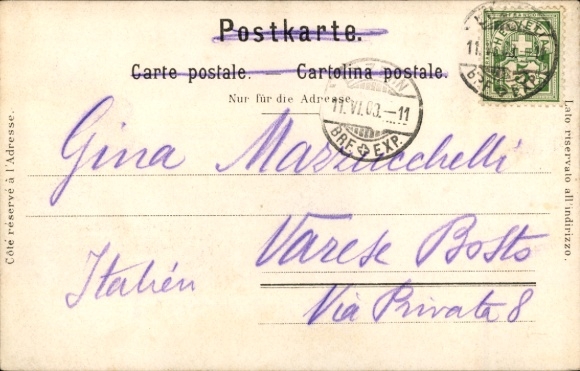 Postkarte.
Carte postale. Cartolina postale.
Nur für die Adresse.
Côté réservé à l'Adresse.
Lato riservato all'indirizzo.
11.VI.03.–11
BRF. EXP.
FRANCO
HELVETIA
Gina Mazzucchelli
Varese Bosto
Italien
Via Privata 8